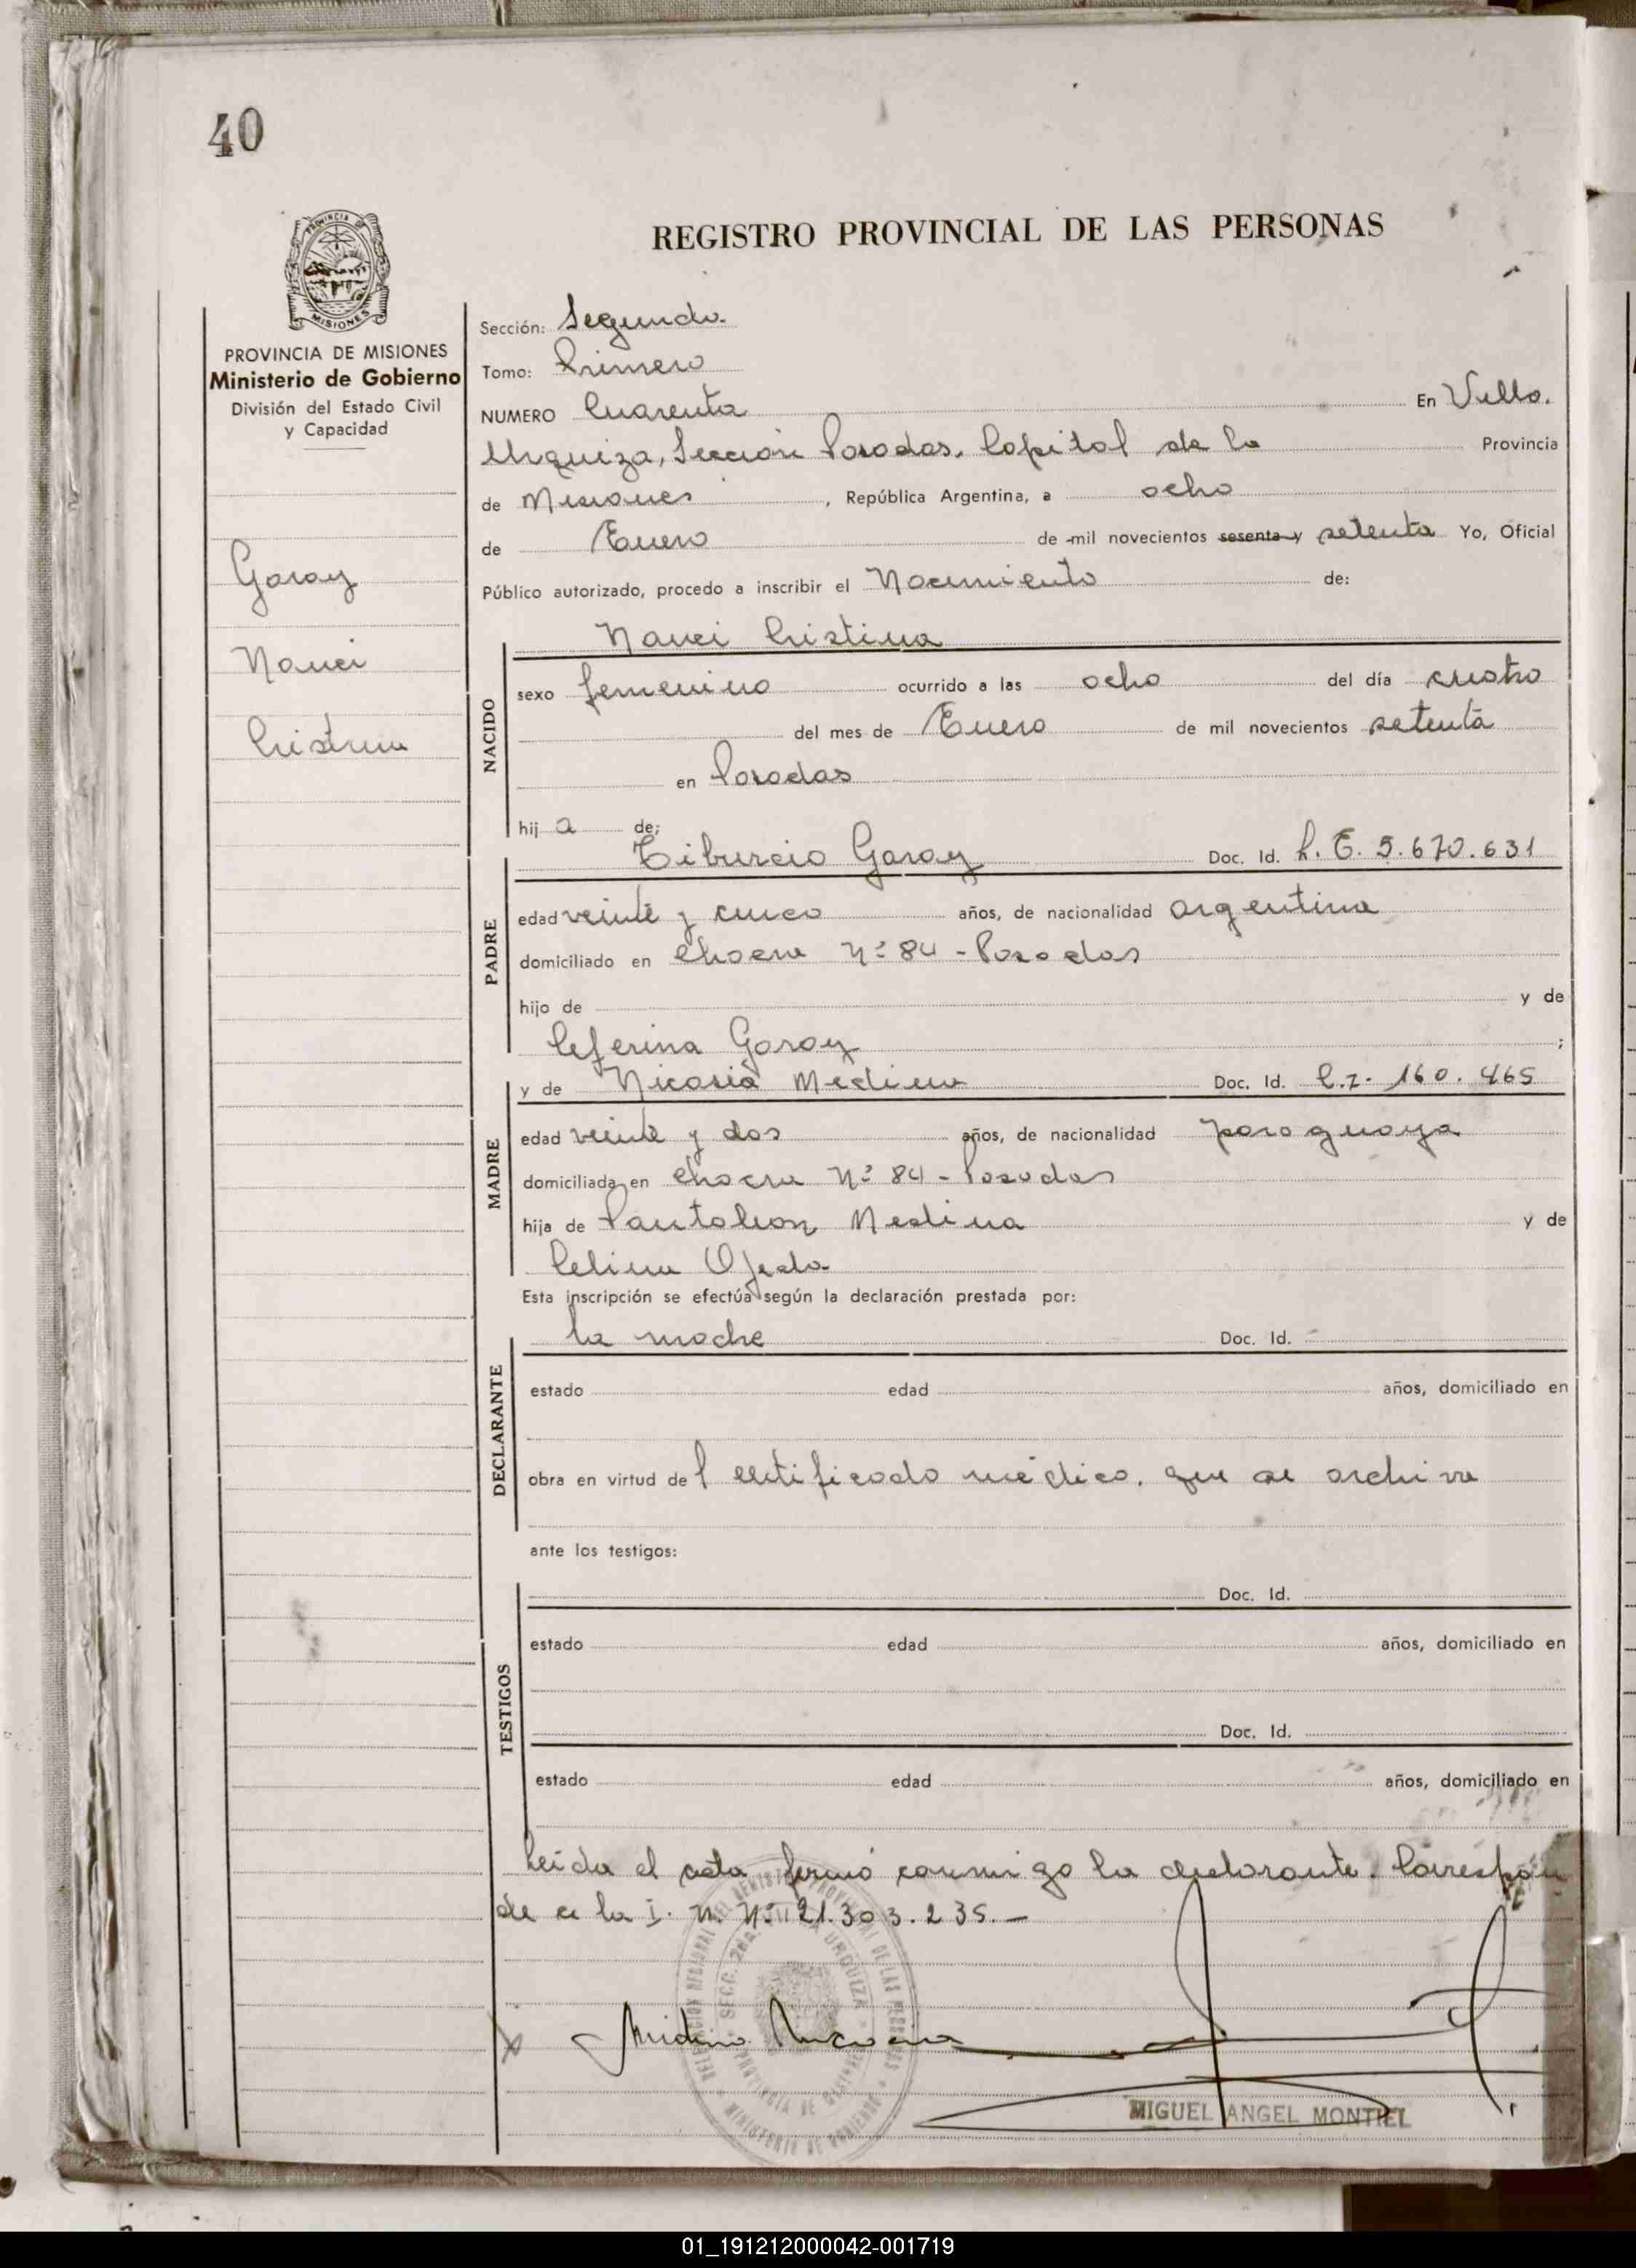 40
PROVINCIA DE
MISIONES
REGISTRO PROVINCIAL DE LAS PERSONAS
PROVINCIA DE MISIONES
Ministerio de Gobierno
División del Estado Civil
y Capacidad
Garay
Nanci
Cristina
Sección: Segunda.
Tomo: Primero
NUMERO Cuarenta En Villa.
Urquiza, Sección Posadas. Capital de la Provincia
de Misiones, República Argentina, a ocho
de Enero de mil novecientos sesenta y setenta Yo, Oficial
Público autorizado, procedo a inscribir el Nacimiento de:
NACIDO
Nanci Cristina
sexo femenino ocurrido a las ocho del día cuatro
del mes de Enero de mil novecientos setenta
en Posadas
hij a de;
PADRE
Tiburcio Garay Doc. Id. L. E. 5.670.631
edad veinte y cinco años, de nacionalidad argentina
domiciliado en Chacra Nº 84 - Posadas
hijo de y de
Ceferina Garay ;
MADRE
y de Nicasia Medina Doc. Id. C.I. 160.465
edad veinte y dos años, de nacionalidad paraguaya
domiciliada en Chacra Nº 84 - Posadas
hija de Pantaleon Medina y de
Celina Ojeda
Esta inscripción se efectúa según la declaración prestada por:
DECLARANTE
la madre Doc. Id.
estado edad años, domiciliado en
obra en virtud del certificado médico. que se archiva
ante los testigos:
TESTIGOS
Doc. Id.
estado edad años, domiciliado en
Doc. Id.
estado edad años, domiciliado en
Leída el acta firmó conmigo la declarante. Correspon
de a la I. N. Nº 21.303.235.-
SECC. 2da. URQUIZA
PROVINCIA DE MISIONES
MINISTERIO DE GOBIERNO
Medina Nicasia
MIGUEL ANGEL MONTIEL
01_191212000042-001719